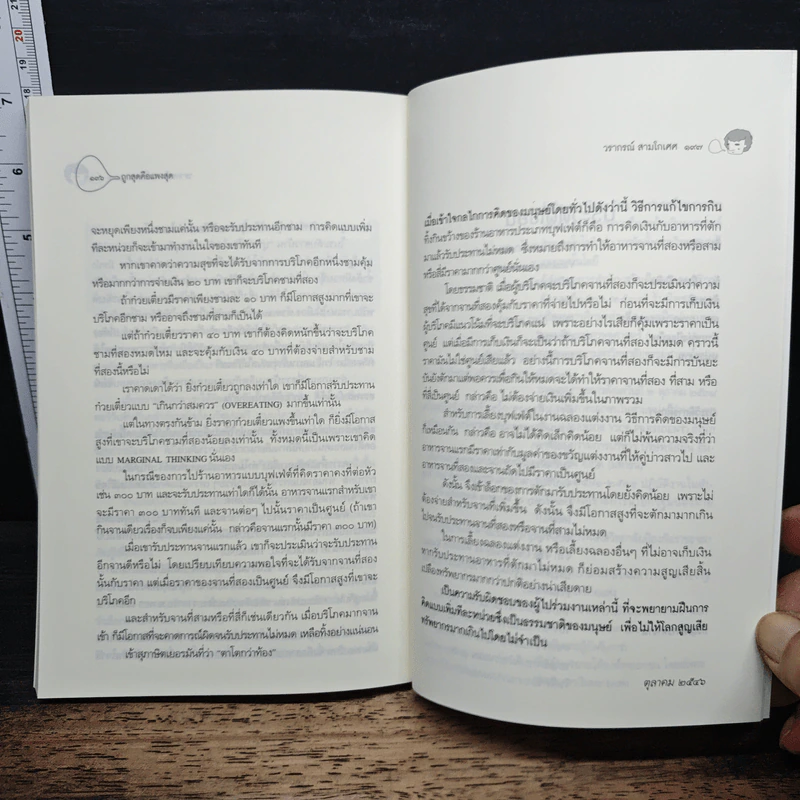 ๑๑๖ ถูกสุดคือแพงสุด
จะหยุดเพียงหนึ่งชามแค่นั้น หรือจะรับประทานอีกชาม การคิดแบบเพิ่ม
ทีละหน่วยก็จะเข้ามาทำงานในใจของเขาทันที
หากเขาคาดว่าความสุขที่จะได้รับจากการบริโภคอีกหนึ่งชามคุ้ม
หรือมากกว่าการจ่ายเงิน ๒๐ บาท เขาก็จะบริโภคชามที่สอง
ถ้าก๋วยเตี๋ยวมีราคาเพียงชามละ ๑๐ บาท ก็มีโอกาสสูงมากที่เขาจะ
บริโภคอีกชาม หรืออาจถึงชามที่สามก็เป็นได้
แต่ถ้าก๋วยเตี๋ยวราคา ๔๐ บาท เขาก็ต้องคิดหนักขึ้นว่าจะบริโภค
ชามที่สองดีไหม และจะคุ้มกับเงิน ๔๐ บาทที่ต้องจ่ายสำหรับชาม
ที่สองนี้หรือไม่
เราคาดเดาได้ว่า ยิ่งก๋วยเตี๋ยวถูกลงเท่าใด เขาก็มีโอกาสรับประทาน
ก๋วยเตี๋ยวแบบ "เกินกว่าสมควร" (OVEREATING) มากขึ้นเท่านั้น
แต่ในทางตรงกันข้าม ยิ่งราคาก๋วยเตี๋ยวแพงขึ้นเท่าใด ก็ยิ่งมีโอกาส
สูงที่เขาจะบริโภคชามที่สองน้อยลงเท่านั้น ทั้งหมดนี้เป็นเพราะเขาคิด
แบบ MARGINAL THINKING นั่นเอง
ในกรณีของการไปร้านอาหารแบบบุฟเฟ่ต์ที่คิดราคาคงที่ต่อหัว
เช่น ๓๐๐ บาท และจะรับประทานเท่าใดก็ได้นั้น อาหารจานแรกสำหรับเขา
จะมีราคา ๓๐๐ บาททันที และจานต่อๆ ไปนั้นราคาเป็นศูนย์ (ถ้าเขา
กินจานเดียวเรื่องก็จบเพียงแค่นั้น กล่าวคือจานแรกนั้นมีราคา ๓๐๐ บาท)
เมื่อเขารับประทานจานแรกแล้ว เขาก็จะประเมินว่าจะรับประทาน
อีกจานดีหรือไม่ โดยเปรียบเทียบความพอใจที่จะได้รับจากจานที่สอง
นั้นกับราคา แต่เมื่อราคาของจานที่สองเป็นศูนย์ จึงมีโอกาสสูงที่เขาจะ
บริโภคอีก
และสำหรับจานที่สามหรือที่สี่ก็เช่นเดียวกัน เมื่อบริโภคมากจาน
เข้า ก็มีโอกาสที่จะคาดการณ์ผิดจนรับประทานไม่หมด เหลือทิ้งอย่างแน่นอน
เข้าสุภาษิตเยอรมันที่ว่า "ตาโตกว่าท้อง"
วรากรณ์ สามโกเศศ ๑๑๗
เมื่อเข้าใจกลไกการคิดของมนุษย์โดยทั่วไปดังว่านี้ วิธีการแก้ไขการกิน
ทิ้งกินขว้างของร้านอาหารประเภทบุฟเฟ่ต์ก็คือ การคิดเงินกับอาหารที่ตัก
มาแล้วรับประทานไม่หมด ซึ่งหมายถึงการทำให้อาหารจานที่สองหรือสาม
หรือสี่มีราคามากกว่าศูนย์นั่นเอง
โดยธรรมชาติ เมื่อผู้บริโภคจะบริโภคจานที่สองก็จะประเมินว่าความ
สุขที่ได้จากจานที่สองคุ้มกับราคาที่จ่ายไปหรือไม่ ก่อนที่จะมีการเก็บเงิน
ผู้บริโภคมีแนวโน้มที่จะบริโภคแน่ เพราะอย่างไรเสียก็คุ้มเพราะราคาเป็น
ศูนย์ แต่เมื่อมีการเก็บเงินก็จะเป็นว่าถ้าบริโภคจานที่สองไม่หมด คราวนี้
ราคามันไม่ใช่ศูนย์เสียแล้ว อย่างนี้การบริโภคจานที่สองก็จะมีการบันยะ
บันยังตักมาแต่พอควรเพื่อกินให้หมดจะได้ทำให้ราคาจานที่สอง ที่สาม หรือ
ที่สี่เป็นศูนย์ กล่าวคือ ไม่ต้องจ่ายเงินเพิ่มขึ้นในภาพรวม
สำหรับการเลี้ยงบุฟเฟ่ต์ในงานฉลองแต่งงาน วิธีการคิดของมนุษย์
ก็เหมือนกัน กล่าวคือ อาจไม่ได้คิดเล็กคิดน้อย แต่ก็ไม่พ้นความจริงที่ว่า
อาหารจานแรกมีราคาเท่ากับมูลค่าของขวัญแต่งงานที่ให้คู่บ่าวสาวไป และ
อาหารจานที่สองและจานถัดไปมีราคาเป็นศูนย์
ดังนั้น จึงเข้าล็อกของการตักมารับประทานโดยยั้งคิดน้อย เพราะไม่
ต้องจ่ายสำหรับจานที่เพิ่มขึ้น ดังนั้น จึงมีโอกาสสูงที่จะตักมามากเกิน
ไปจนรับประทานจานที่สองหรือจานที่สามไม่หมด
ในการเลี้ยงฉลองแต่งงาน หรือเลี้ยงฉลองอื่นๆ ที่ไม่อาจเก็บเงิน
หากรับประทานอาหารที่ตักมาไม่หมด ก็ย่อมสร้างความสูญเสียสิ้น
เปลืองทรัพยากรมากกว่าปกติอย่างน่าเสียดาย
เป็นความรับผิดชอบของผู้ไปร่วมงานเหล่านี้ ที่จะพยายามฝืนการ
คิดแบบเพิ่มทีละหน่วยซึ่งเป็นธรรมชาติของมนุษย์ เพื่อไม่ให้โลกสูญเสีย
ทรัพยากรมากเกินไปโดยไม่จำเป็น
ตุลาคม ๒๕๔๖